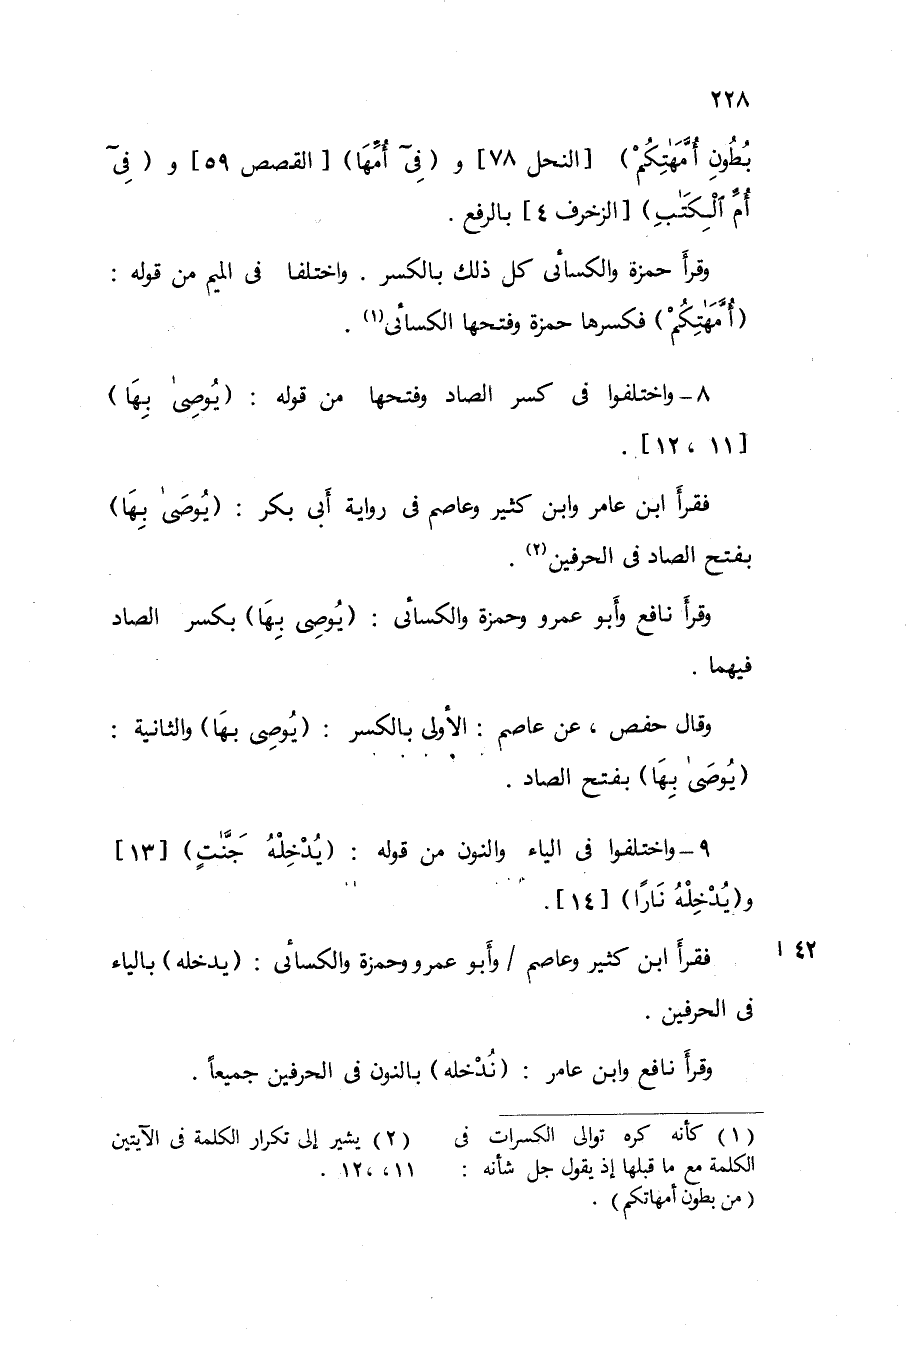 ٢٢٨
بُطُونِ أُمَّهَٰتِكُمْ) [النحل ٧٨] و (فِىٓ أُمِّهَا) [القصص ٥٩] و (فِىٓ
أُمِّ ٱلْكِتَٰبِ) [الزخرف ٤] بالرفع .
وقرأ حمزة والكسائى كل ذلك بالكسر . واختلفا فى الميم من قوله :
(أُمَّهَٰتِكُمْ) فكسرها حمزة وفتحها الكسائى(١) .
٨ – واختلفوا فى كسر الصاد وفتحها من قوله : (يُوصِىٰ بِهَا)
[١١ ، ١٢] .
فقرأ ابن عامر وابن كثير وعاصم فى رواية أبى بكر : (يُوصَىٰ بِهَا)
بفتح الصاد فى الحرفين(٢) .
وقرأ نافع وأبو عمرو وحمزة والكسائى : (يُوصِى بِهَا) بكسر الصاد
فيهما .
وقال حفص ، عن عاصم : الأولى بالكسر : (يُوصِى بهَا) والثانية :
(يُوصَىٰ بِهَا) بفتح الصاد .
٩ – واختلفوا فى الياء والنون من قوله : (يُدْخِلْهُ جَنَّٰتٍ) [١٣]
و(يُدْخِلْهُ نَارًا) [١٤].
٤٢ ا
فقرأ ابن كثير وعاصم / وأبو عمرو وحمزة والكسائى : (يدخله) بالياء
فى الحرفين .
وقرأ نافع وابن عامر : (نُدْخله) بالنون فى الحرفين جميعاً .
(١) كأنه كره توالى الكسرات فى
الكلمة مع ما قبلها إذ يقول جل شأنه :
(من بطون أمهاتكم) .
(٢) يشير إلى تكرار الكلمة فى الآيتين
١١، ،١٢ .